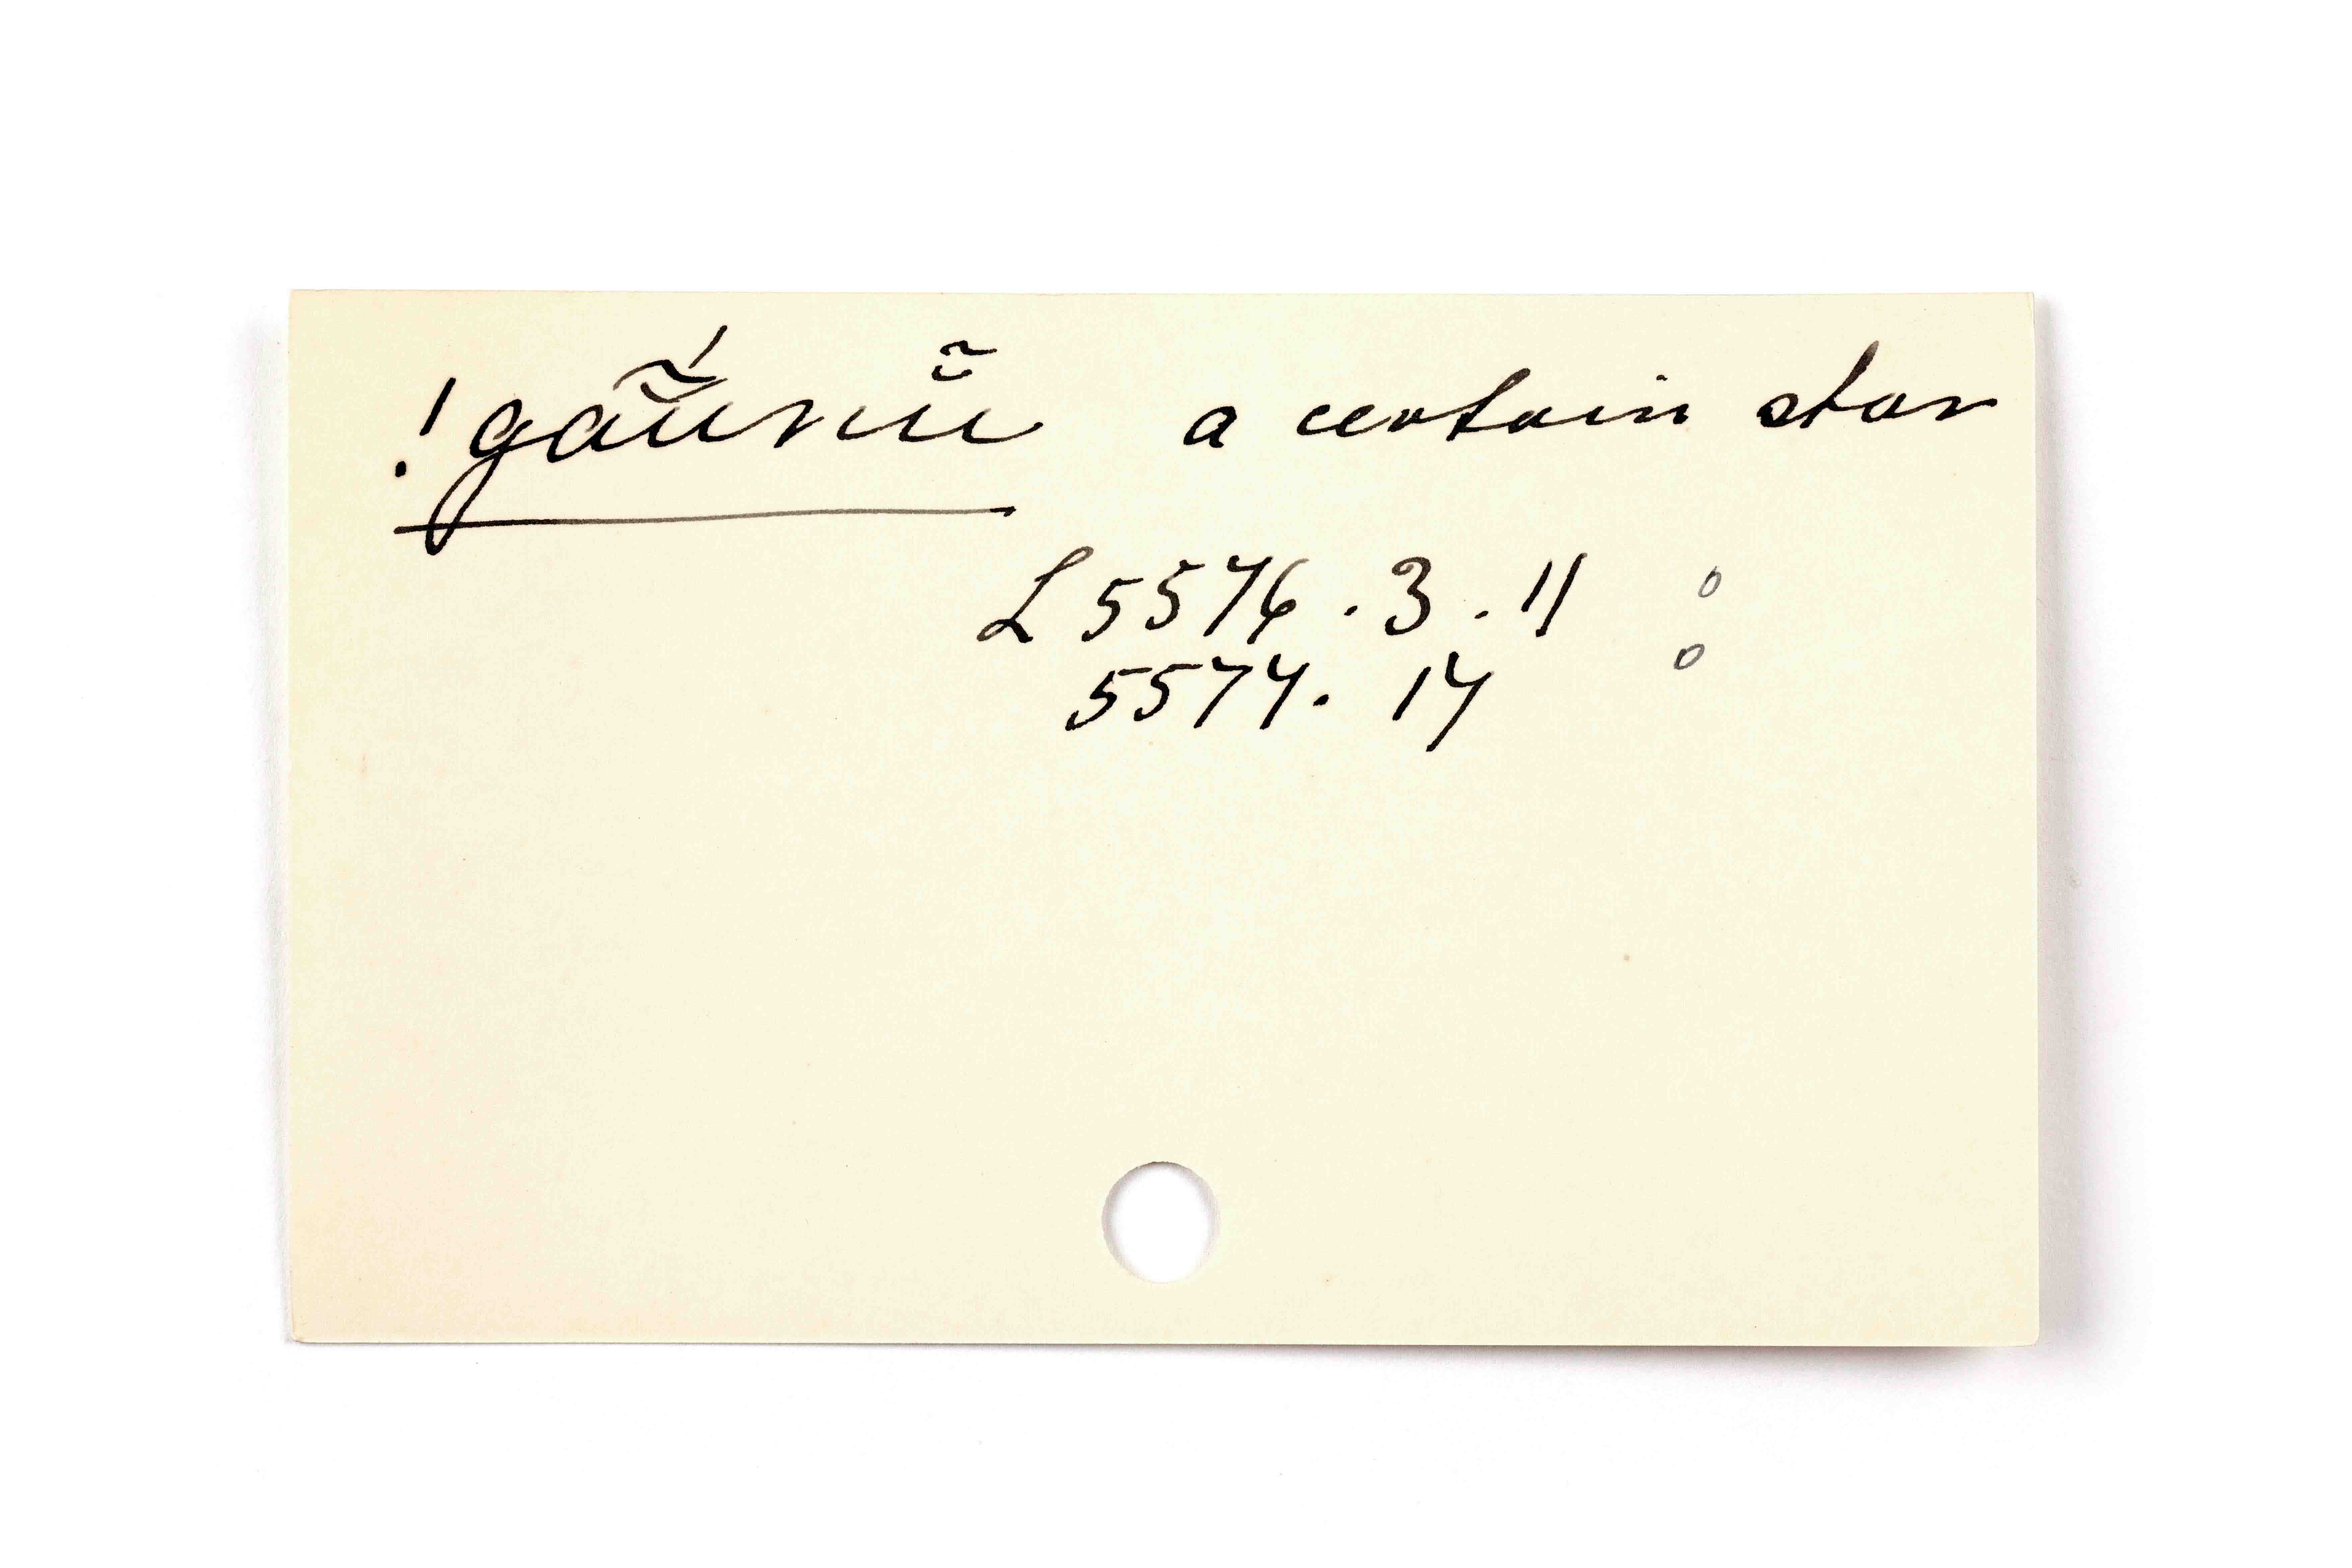 !gãŭ́nũ̆ a certain star
L 5576 . 3 . 11 o
5577 . 17 o